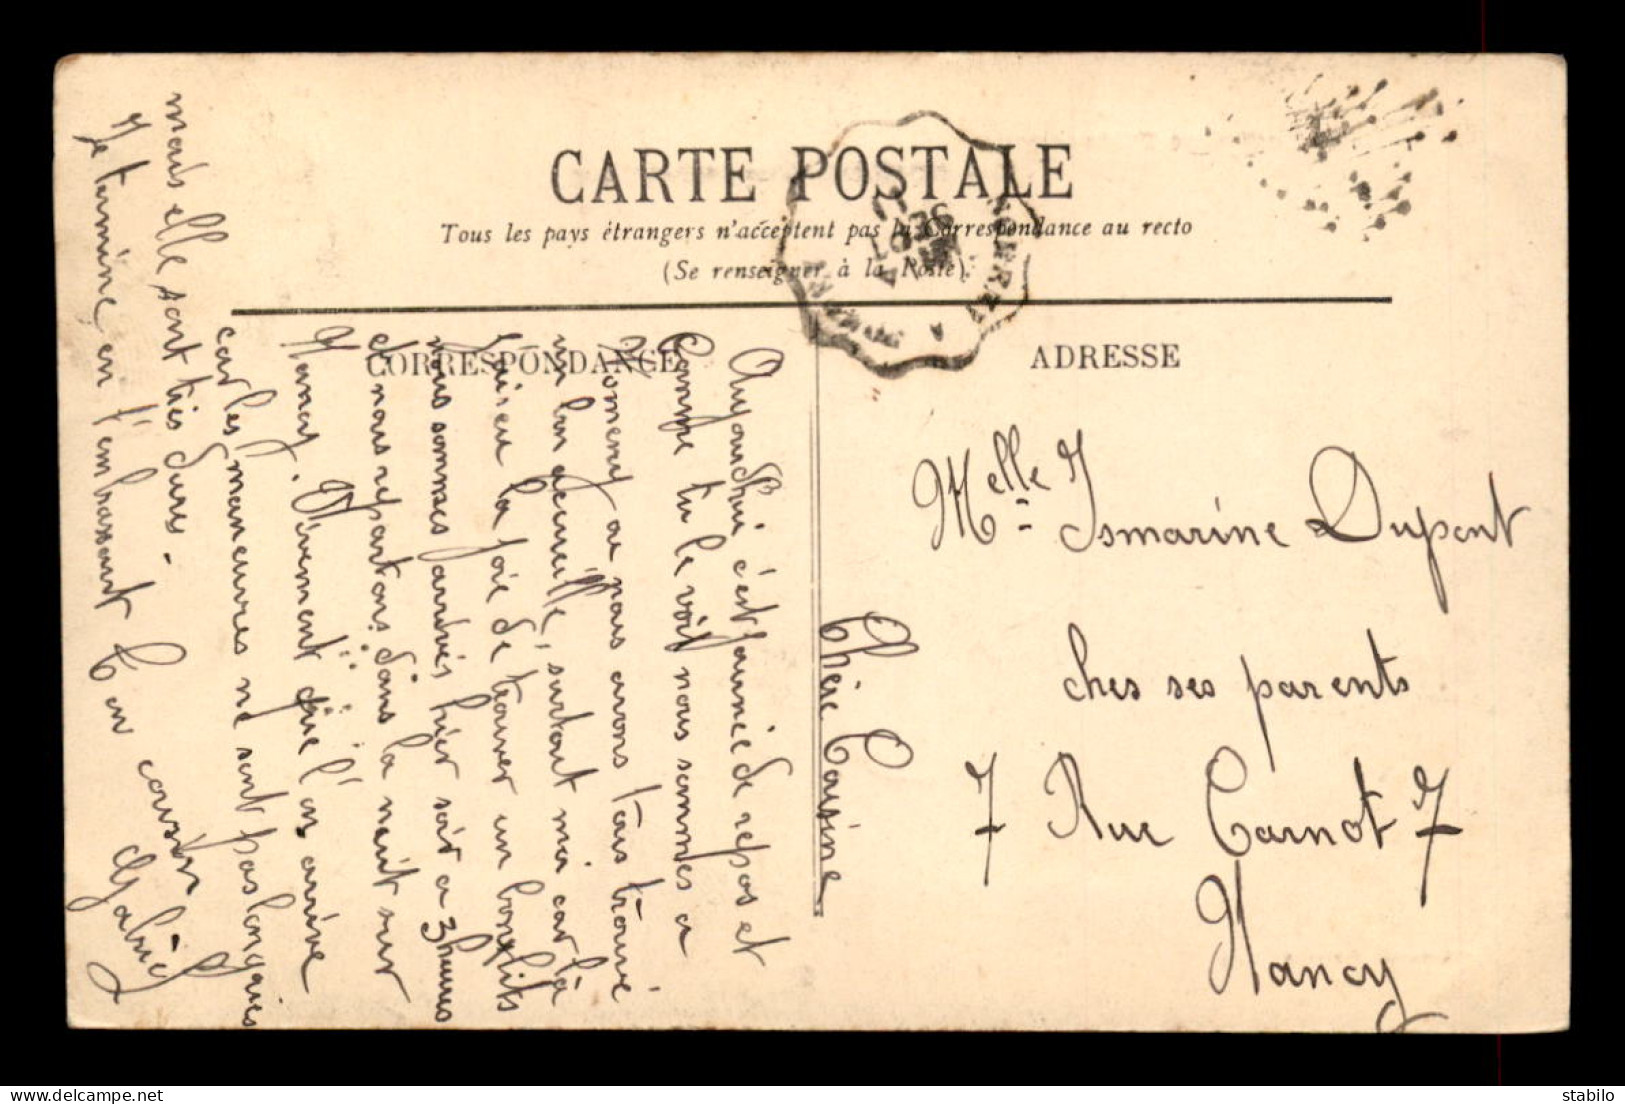 CARTE POSTALE
Tous les pays étrangers n'acceptent pas la Correspondance au recto
(Se renseigner à la Poste).
CORRESPONDANCE
ADRESSE
Melle Ismarine Dupont
ches ses parents
7 Rue Carnot 7
Nancy
Chère Cousine
Aujourd'hui c'est journée de repos et
comme tu le vois nous sommes a
Nomeny ou nous avons tous trouvé
un bon acceuille, surtout moi car là
j'ai eu la joie de trouver un bon lits
nous sommes arrivés hier soir a 3 heures
et nous repartons dans la nuit sur
Nancy. Vivement que l'on arrive
car les manœuvres ne sont pas longues
mais elle sont très dures -
Je termine en t'embrassant Ton cousin
Gabriel
NOMENY A
delcampe.net
stabilo